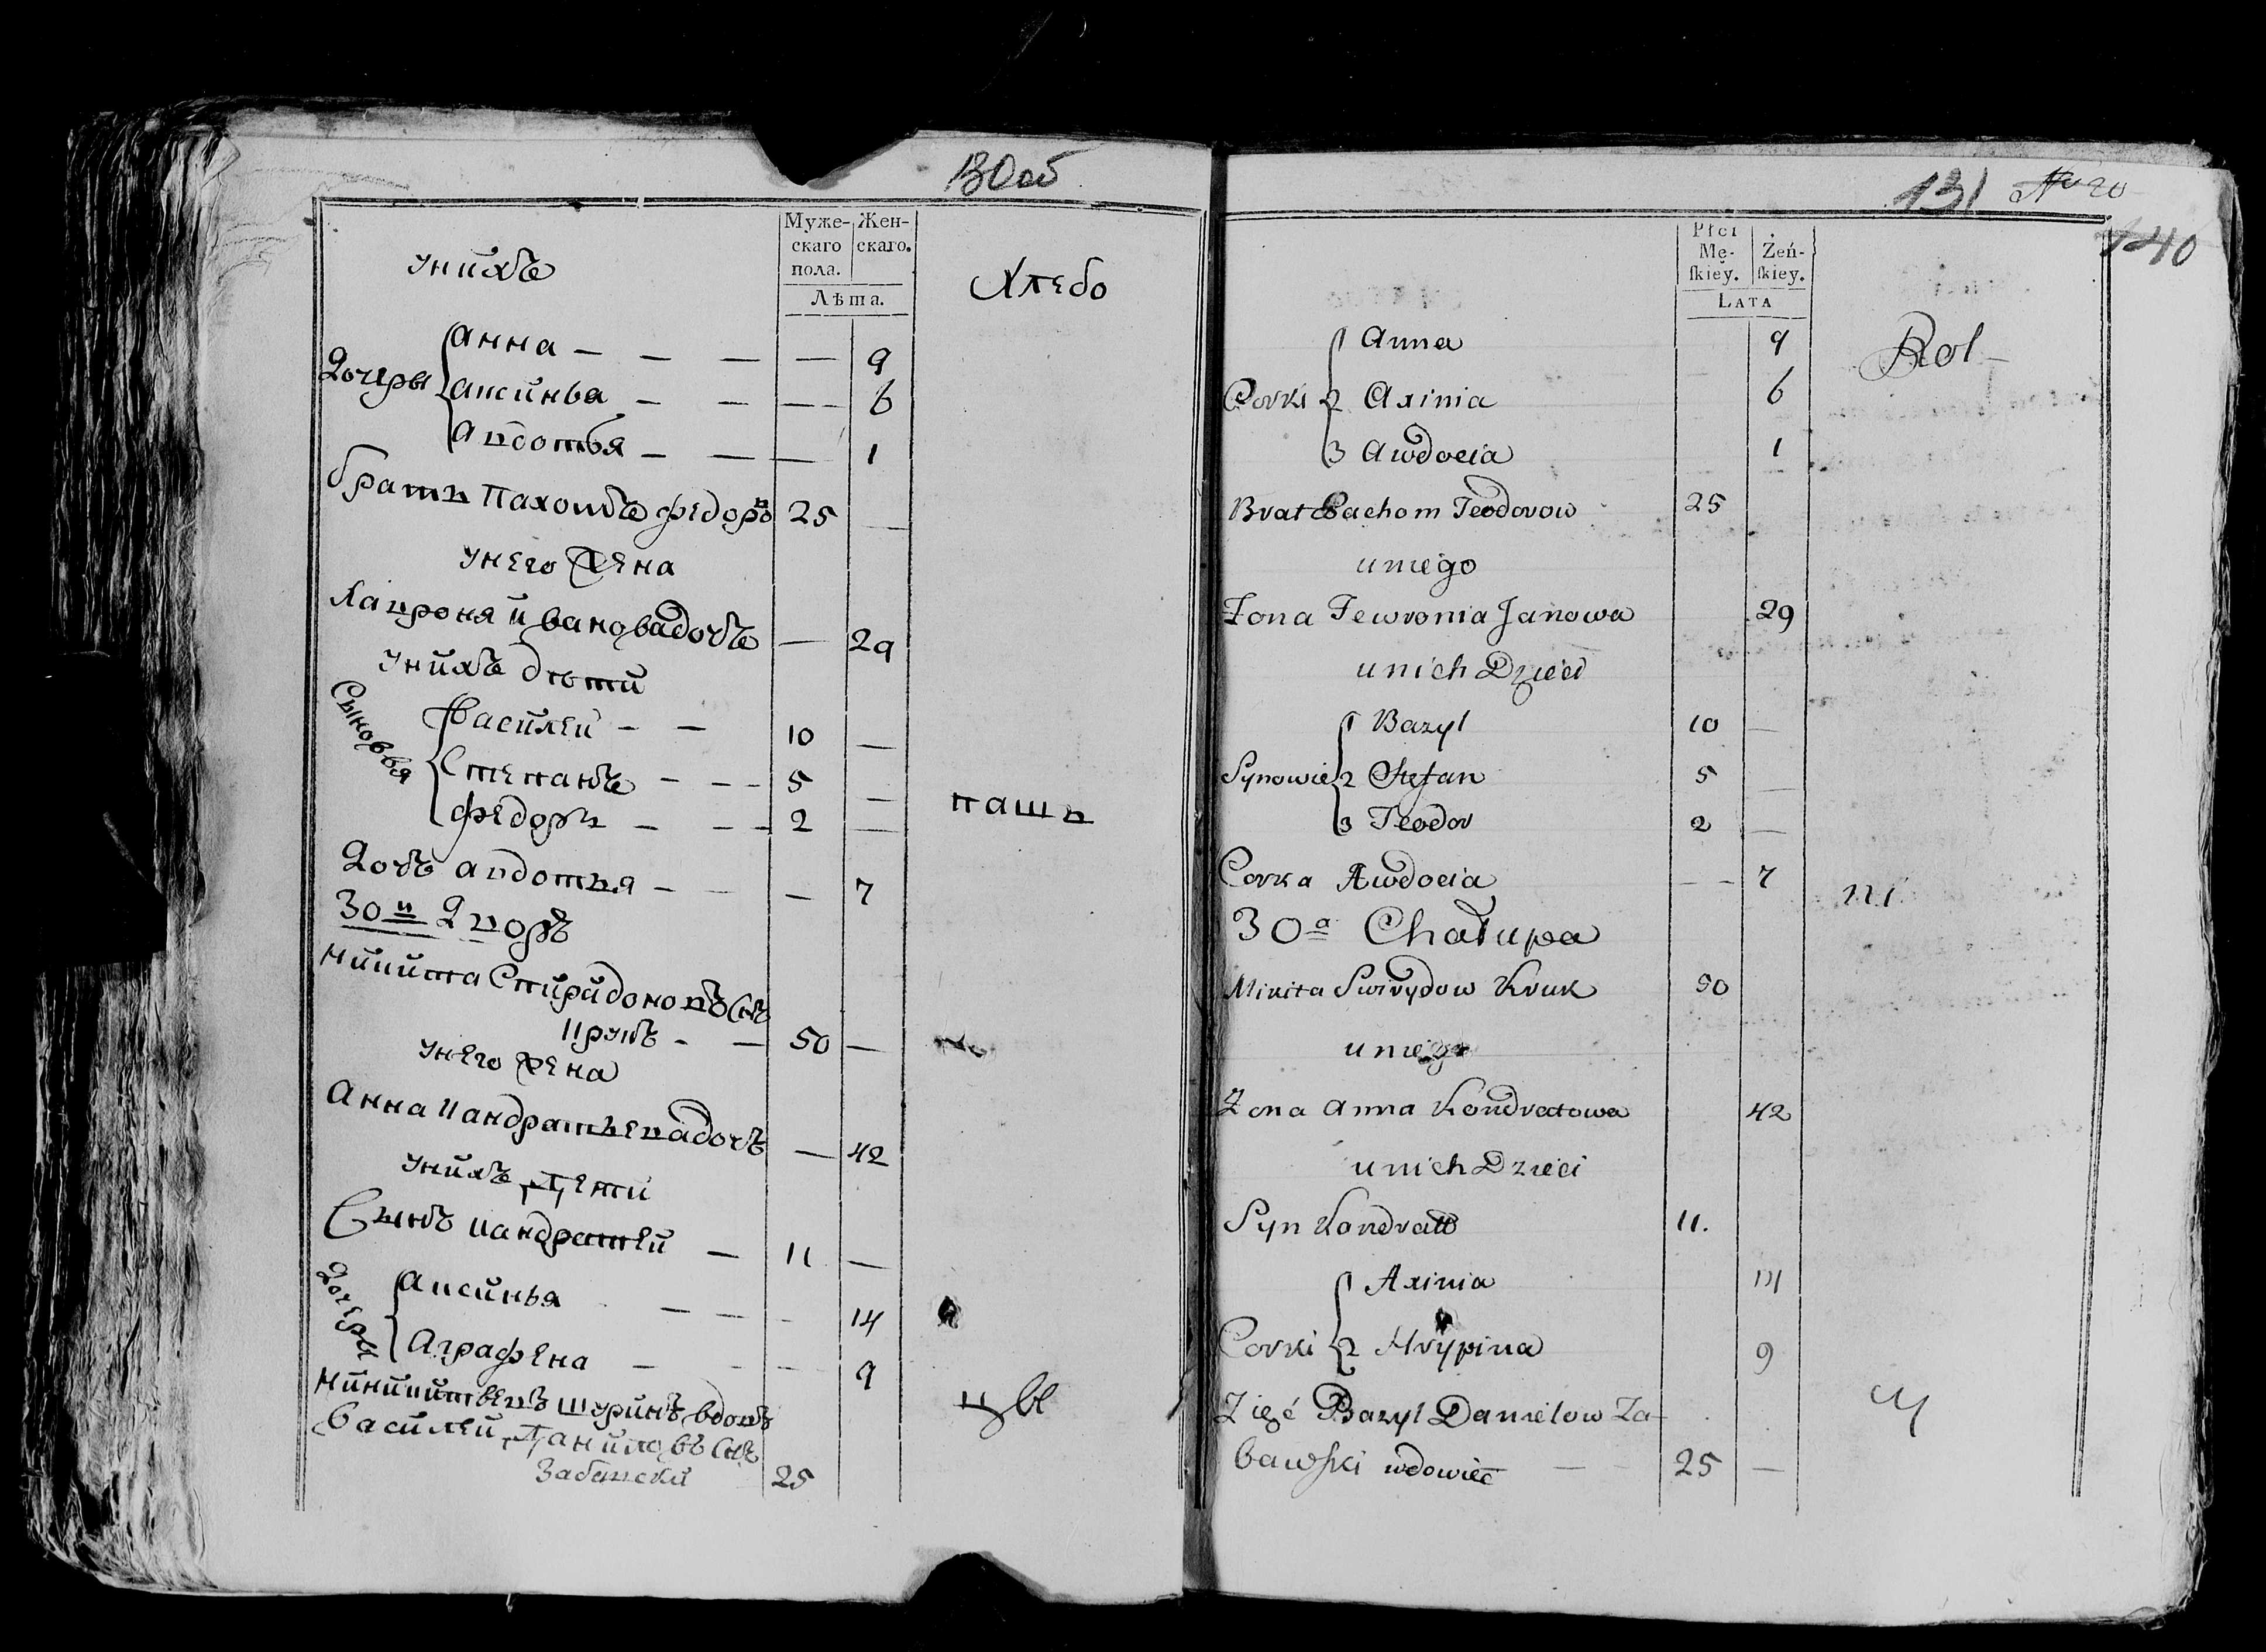 130об
Муже- Жен-
скаго скаго.
пола.
Лѣта.
унихъ
Хлебо
Дочеры
Анна — — — — 9
Аксинья — — — 6
Авдотья — — — 1
братъ Пахомъ Федоръ 25 —
унего жена
Хавроня Ивановадочь — 29
унихъ дѣти
Сыновья
Василей — — 10 —
Степанъ — — 5 —
Федоръ — — 2 —
пашъ
Дочь авдотья — — 7
30й Дворъ
Никита Спиридоновъ Снъ
Крукъ — 50 —
унего жена
Анна Кандратьевадочь — 42
унихъ Дети
Сынъ Кандратей — 11 —
Дочеры
Аксинья — — 14
Аграфена — — 9
Никитенъ шуринъ вдовъ
Василей Даниловъ Снъ
Забавски 25
цы
131 № 20
140
Płci
Mę- Żeń-
skiey. skiey.
Lata
Rol-
Corki
1 Anna 9
2 Axinia 6
3 Awdocia 1
Brat Pachom Teodorow 25
u niego
Żona Fewronia Janowa 29
u nich Dzieci
Synowie
1 Bazyl 10 —
2 Stefan 5 —
3 Teodor 2 —
Corka Awdocia — 7
ni
30a Chałupa
Mikita Swirydow Kruk 50
u niego
Żona Anna Kondratowa 42
u nich Dzieci
Syn Kondratt 11.
Corki
1 Axinia 14
2 Hrypina 9
Zięć Bazyl Danielow Za-
bawski wdowiec — 25 —
cy